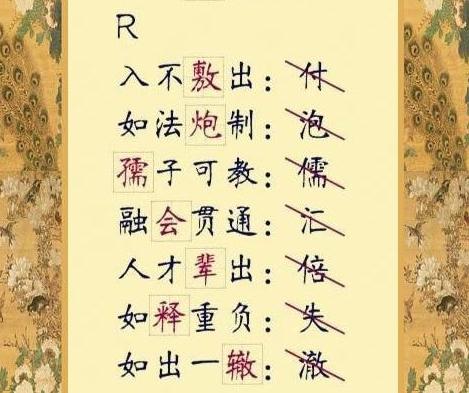 R
入不敷出：付
如法炮制：泡
孺子可教：儒
融会贯通：汇
人才辈出：倍
如释重负：失
如出一辙：澈